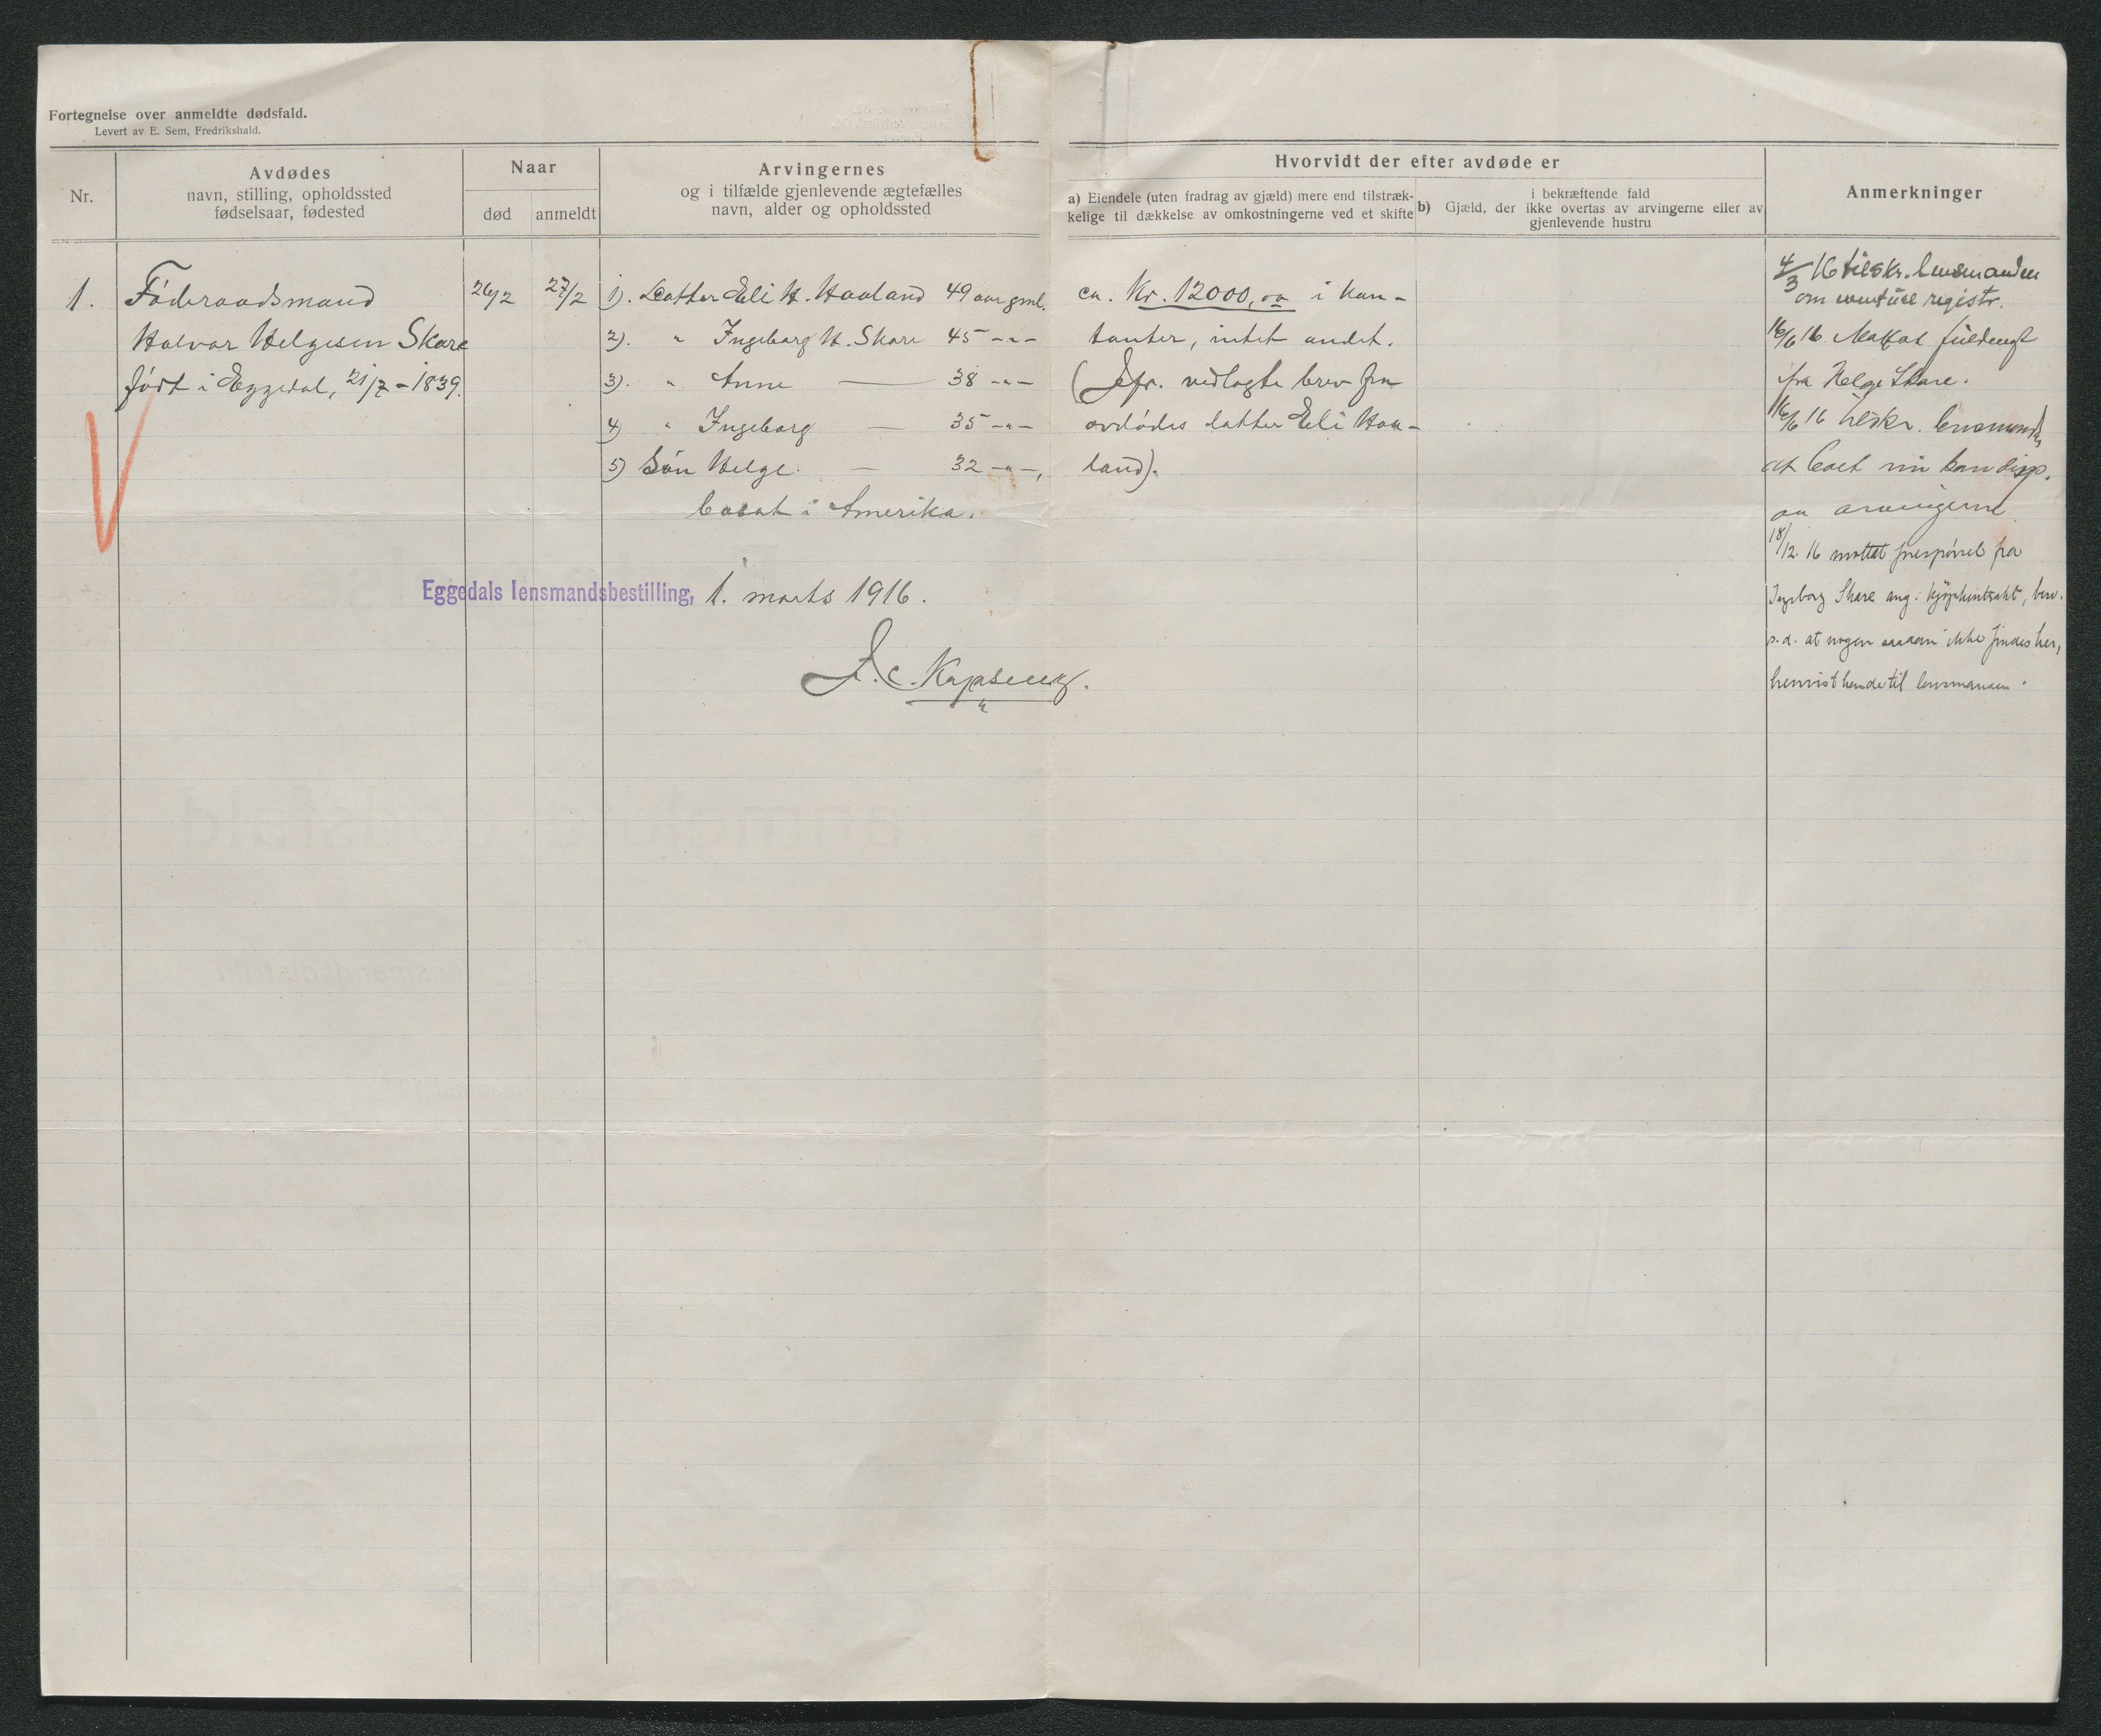 Fortegnelse over anmeldte dødsfald.
Levert av E. Sem, Fredrikshald.
Nr.
Avdødes
navn, stilling, opholdssted
fødselsaar, fødested
Naar
død
anmeldt
Arvingernes
og i tilfælde gjenlevende ægtefælles
navn, alder og opholdssted
Hvorvidt der efter avdøde er
a) Eiendele (uten fradrag av gjæld) mere end tilstræk-
kelige til dækkelse av omkostningerne ved et skifte
b) Gjæld, der i bekræftende fald
ikke overtas av arvingerne eller av
gjenlevende hustru
Anmerkninger
1.
Föderaadsmand
Halvor Helgesen Skare
født i Eggedal, 21/7 - 1839.
26/2
27/2
1). Datter Eli H. Haaland 49 aar gml.
2). " Ingeborg H. Skare 45 -"-
3). " Anne — 38 -"-
4) " Ingeborg — 35 -"-
5) Søn Helge — 32 -"-,
bosat i Amerika.
ca. Kr. 12000,00 i kon-
tanter, intet andet.
(Jfr. vedlagte brev fra
avdødes datter Eli Haa-
land).
4/3 16 tilskr. lensmanden
om eventuel registr.
16/6 16 Mottat fuldmagt
fra Helge Skare.
16/6 16 tilskr. lensmanden
at boet nu kan disp.
av arvingerne
18/12. 16 mottat forespørsel fra
Ingeborg Skare ang. kjøpekontrakt, besv.
s. d. at nogen saadan ikke findes her,
henvist hende til lensmanden.
Eggedals lensmandsbestilling, 1. marts 1916.